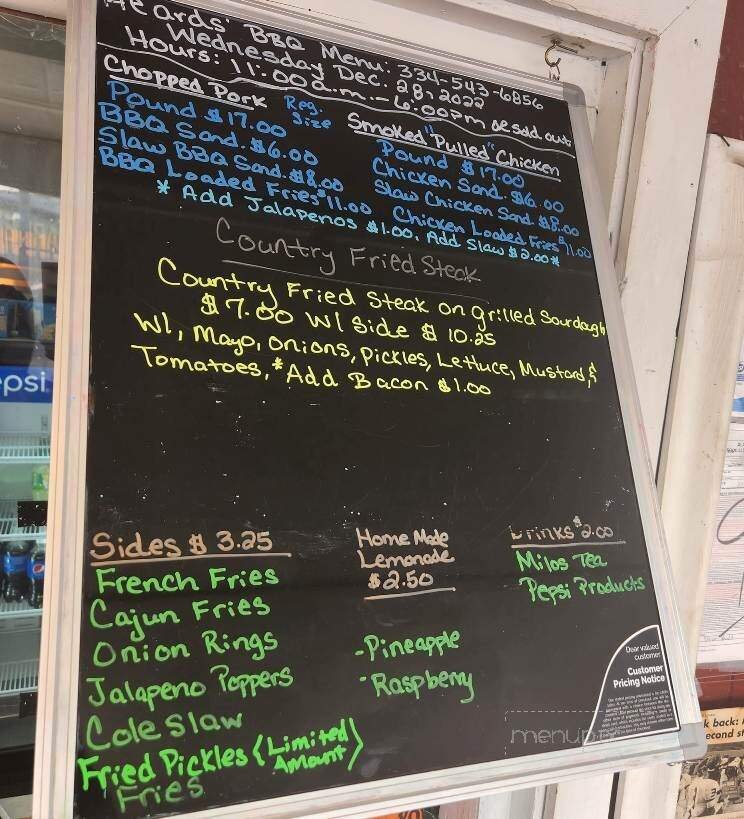 Heards' BBQ Menu: 334-543-6856
Wednesday Dec. 28, 2022
Hours: 11:00a.m.-6:00pm or sold out
Chopped Pork Reg. Size
Pound $17.00
BBQ Sand. $6.00
Slaw BBQ Sand. $8.00
BBQ Loaded Fries $11.00
Smoked "Pulled" Chicken
Pound $17.00
Chicken Sand. $6.00
Slaw Chicken Sand. $8.00
Chicken Loaded Fries $11.00
* Add Jalapenos $1.00, Add Slaw $2.00*
Country Fried Steak
Country Fried Steak on grilled Sourdough
$7.00 W/ Side $10.25
W/, Mayo, Onions, Pickles, Lettuce, Mustard, &
Tomatoes, *Add Bacon $1.00
Sides $3.25
French Fries
Cajun Fries
Onion Rings
Jalapeno Poppers
Cole Slaw
Fried Pickles (Limited Amount)
Fries
Home Made
Lemonade
$2.50
-Pineapple
-Raspberry
Drinks $2.00
Milos Tea
Pepsi Products
Dear valued
customer
Customer
Pricing Notice
psi
menup
k back:
econd st